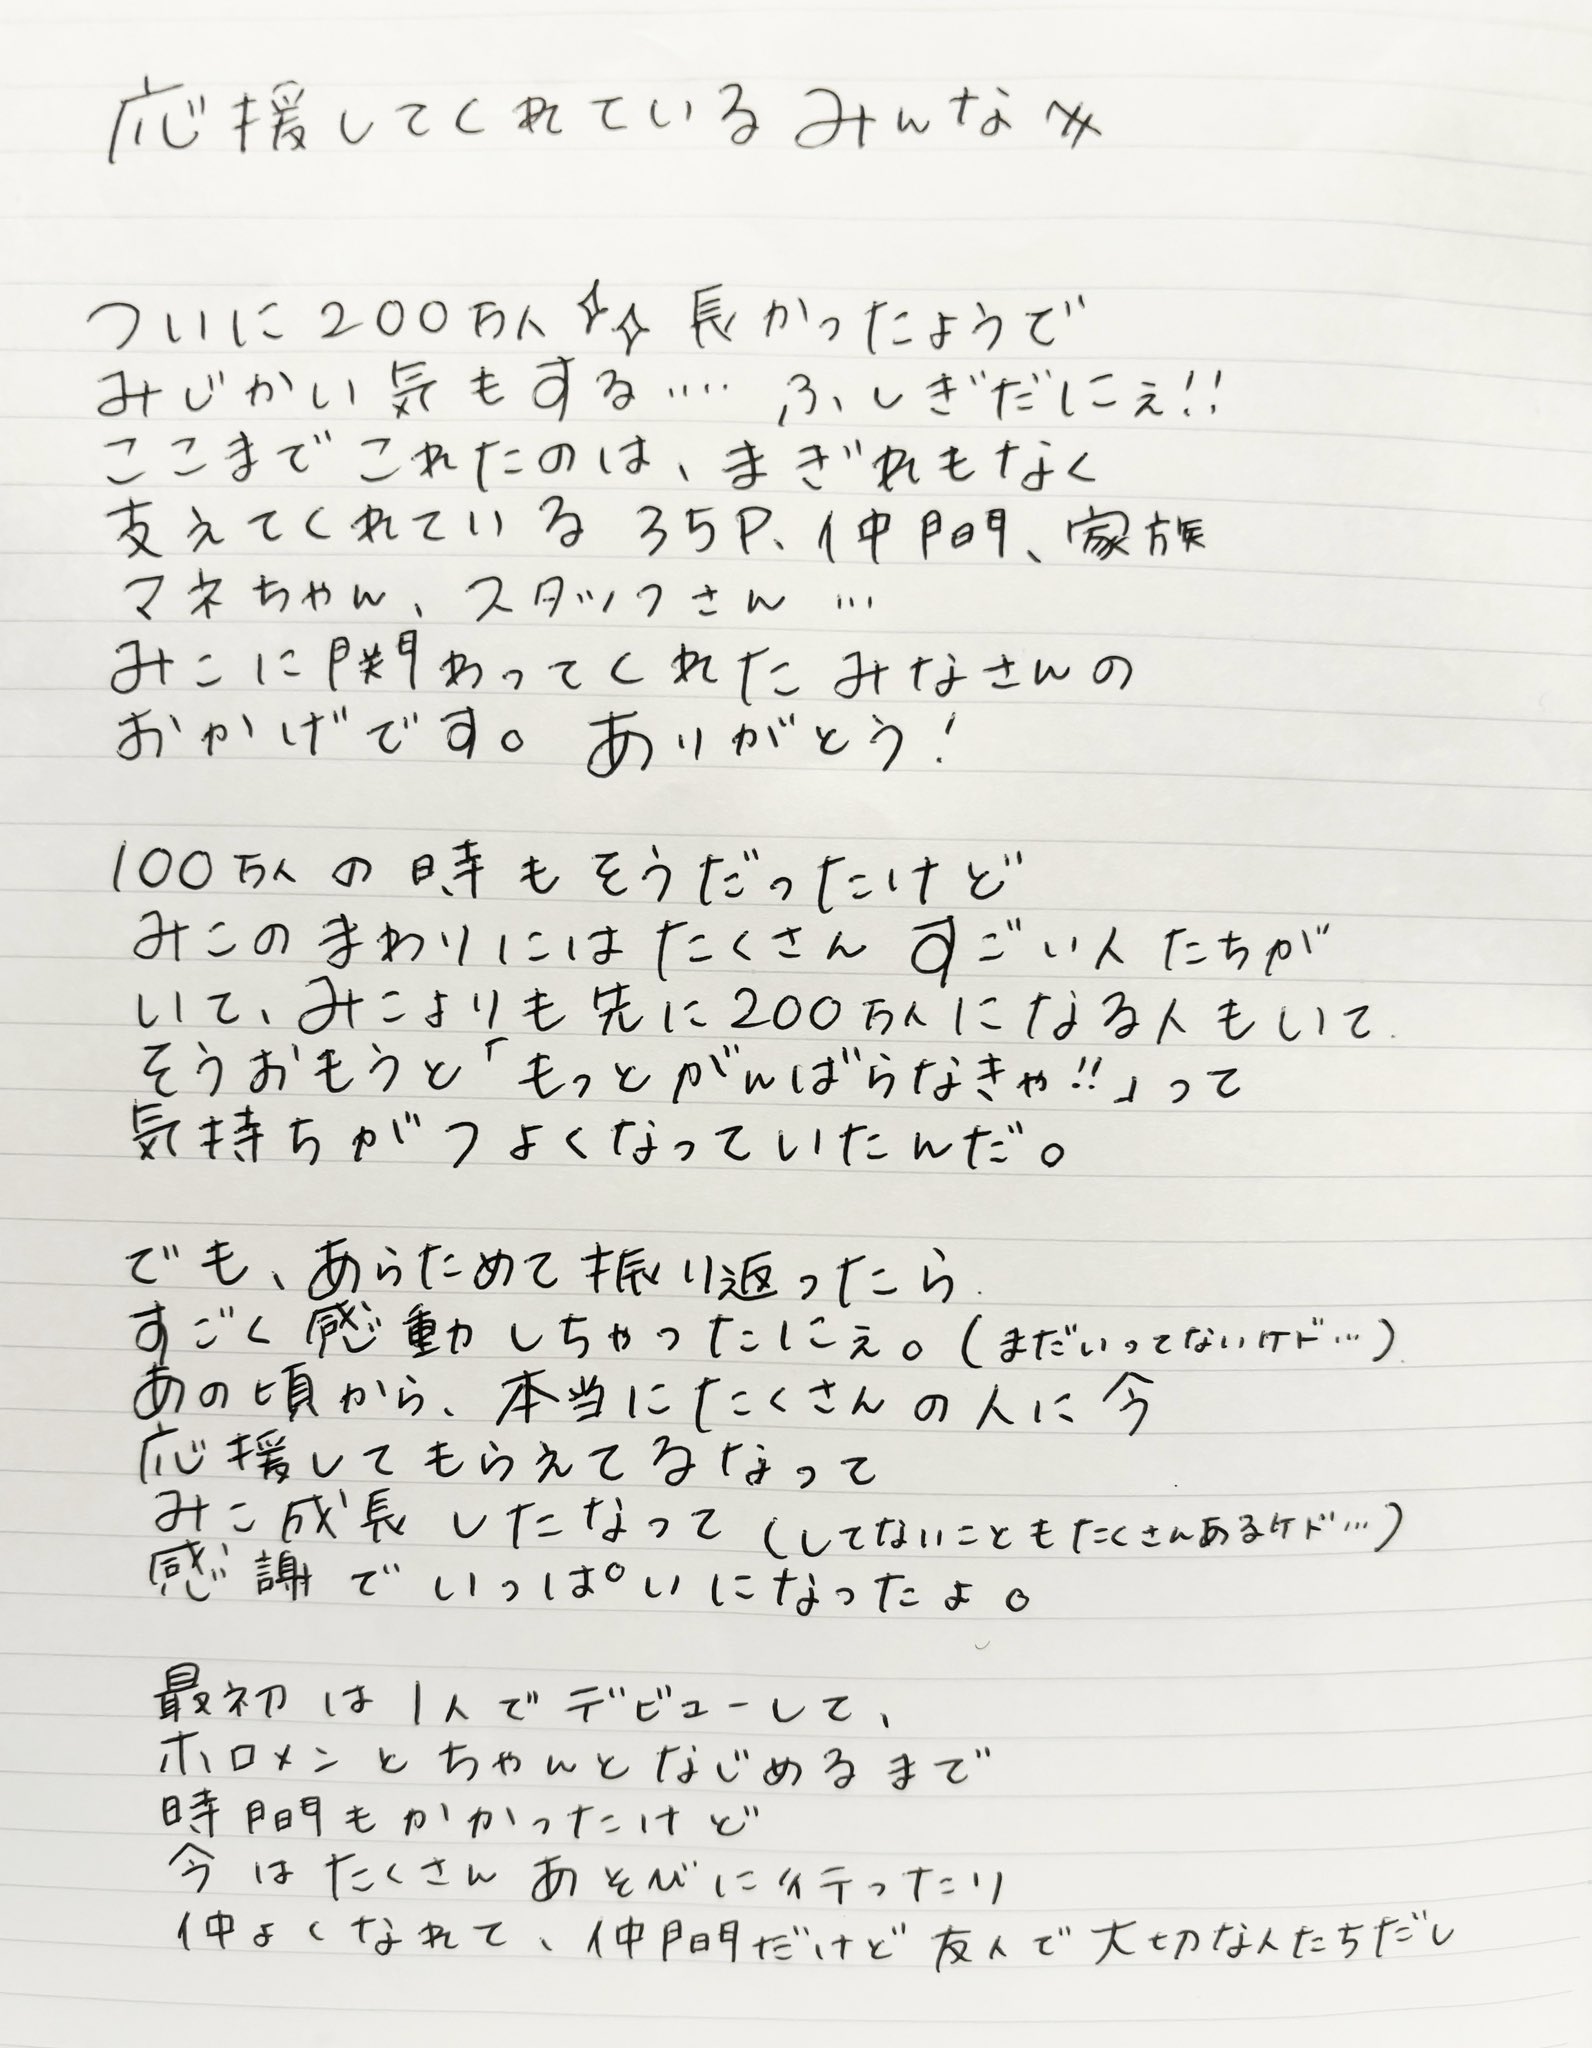 応援してくれているみんなへ
ついに200万人✨長かったようで
みじかい気もする…. ふしぎだにぇ!!
ここまでこれたのは、まぎれもなく
支えてくれている 35P、仲間、家族
マネちゃん、スタッフさん…
みこに関わってくれたみなさんの
おかげです。ありがとう!
100万人の時もそうだったけど
みこのまわりにはたくさんすごい人たちが
いて、みこよりも先に200万人になる人もいて
そうおもうと「もっとがんばらなきゃ!!」って
気持ちがつよくなっていたんだ。
でも、あらためて振り返ったら
すごく感動しちゃったにぇ。(まだいってないケド…)
あの頃から、本当にたくさんの人に今
応援してもらえてるなって
みこ成長したなって(してないこともたくさんあるケド…)
感謝でいっぱいになったよ。
最初は1人でデビューして、
ホロメンとちゃんとなじめるまで
時間もかかったけど
今はたくさんあそびに行ったり
仲よくなれて、仲間だけど友人で大切な人たちだし